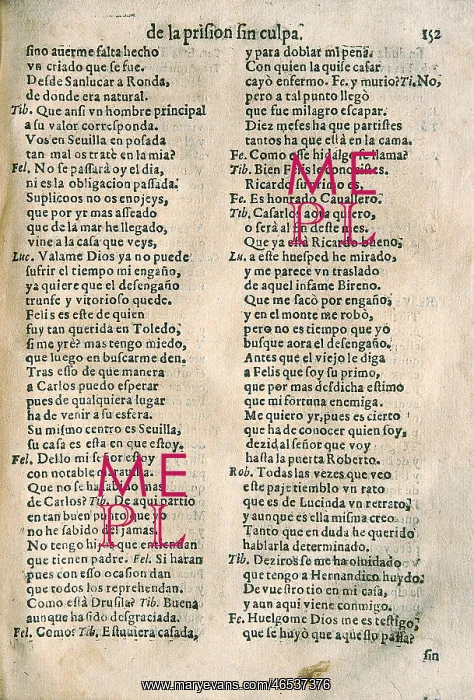 de la prision sin culpa.
152
sino auerme falta hecho
vn criado que se fue.
Desde Sanlucar a Ronda,
de donde era natural.
Tib. Que ansi vn hombre principal
a su valor corresponda.
Vos en Seuilla en posada
tan mal os tratè en la mia?
Fel. No se passarà oy el dia,
ni es la obligacion passada.
Suplicoos no os enojeys,
que por yr mas asseado
que de la mar he llegado,
vine a la casa que veys,
Luc. Valame Dios ya no puede
sufrir el tiempo mi engaño,
ya quiere que el desengaño
trunfe y vitorioso quede.
Felis es este de quien
fuy tan querida en Toledo,
si me yrè? mas tengo miedo,
que luego en buscarme den.
Tras esso de que manera
a Carlos puedo esperar
pues de qualquiera lugar
ha de venir a su esfera.
Su mismo centro es Seuilla,
su casa es esta en que estoy.
Fel. Dello mi señor estoy
con notable marauilla.
Que no se ha sabido mas
de Carlos? Tib. De aqui partio
en tan buen punto que yo
no he sabido del jamas.
No tengo hijo que entiendan
que tienen padre. Fel. Si haran
pues con esso ocasion dan
que todos los reprehendan.
Como està Drusila? Tib. Buena
aunque ha sido desgraciada.
Fel. Como? Tib. Estuuiera casada,
y para doblar mi pena.
Con quien la quise casar
cayò enfermo. Fe. y murio? Ti. No,
pero a tal punto llegò
que fue milagro escapar.
Diez meses ha que partistes
tantos ha que està en la cama.
Fe. Como esse hidalgo se llama?
Tib. Bien Felis le conocistes.
Ricardo su vezino es.
Fe. Es honrado Cauallero.
Tib. Casarlos aora quiero,
o serà al fin deste mes.
Que ya està Ricardo bueno,
Lu. a este huesped he mirado,
y me parece vn traslado
de aquel infame Bireno.
Que me sacò por engaño,
y en el monte me robò,
pero no es tiempo que yo
busque aora el desengaño.
Antes que el viejo le diga
a Felis que soy su primo,
que por mas desdicha estimo
que mi fortuna enemiga.
Me quiero yr, pues es cierto
que ha de conocer quien soy,
dezid al señor que voy
hasta la puerta Roberto.
Rob. Todas las vezes que veo
este paje tiemblo vn rato
que es de Lucinda vn retrato,
y aunque es ella misma creo.
Tanto que en duda he querido
hablarla determinado.
Tib. Deziros se me ha oluidado
que tengo a Hernandico huydo.
De vuestro tio en mi casa,
y aun aqui viene conmigo.
Fe. Huelgome Dios me es testigo,
que se huyò que aquesso passa?
sin
ME
PL
ME
PL
www.maryevans.com/46537376